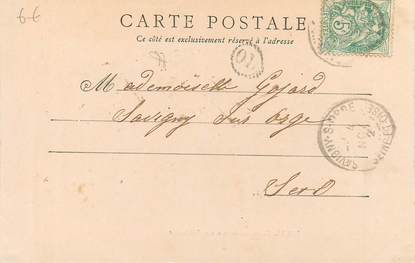 6€
CARTE POSTALE
Ce côté est exclusivement réservé à l'adresse
OL
Mademoiselle Gojard
Savigny sur Orge
SAVIGNY-S-ORGE
SEINE-ET-OISE